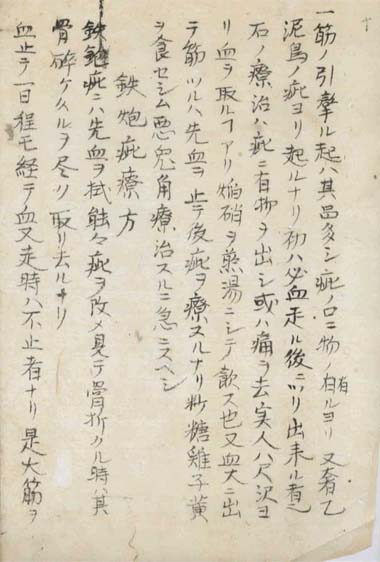 一筋ノ引攣ル起ハ其品多シ疵ノ口ニ物ノ有ルヨリ又者乙
泥烏ノ疵ヨリ起ルナリ初ハ必血走ル後ニツリ出来ル者也
石ノ療治ハ疵ニ有物ヲ出シ或ハ痛ヲ去実人ハ尺沢ヨ
リ血ヲ取ルヿアリ焔硝ヲ煎湯ニシテ飲ス也又血大ニ出
テ筋ツルハ先血ヲ止テ後疵ヲ療スルナリ炒糖雞子黄
ヲ食セシム悪鬼角療治スルニ急ニスベシ
鉄炮疵療方
鉄鉋疵ニハ先血ヲ拭能々疵ヲ改メ見テ骨折クル時ハ其
骨砕ケクルヲ尽ク取リ去ルナリ
血止テ一日程モ経テ血又走時ハ不止者ナリ是大筋ヲ